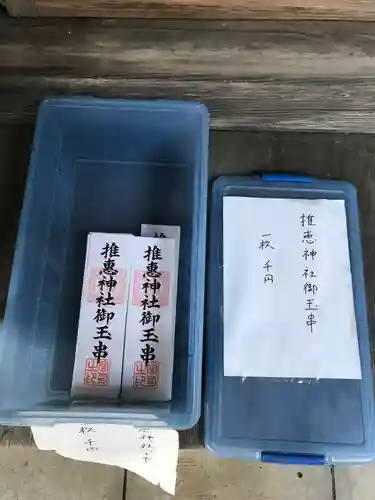 推恵神社御玉串
推恵神社御玉串
推恵神社御玉串
一枚 千円